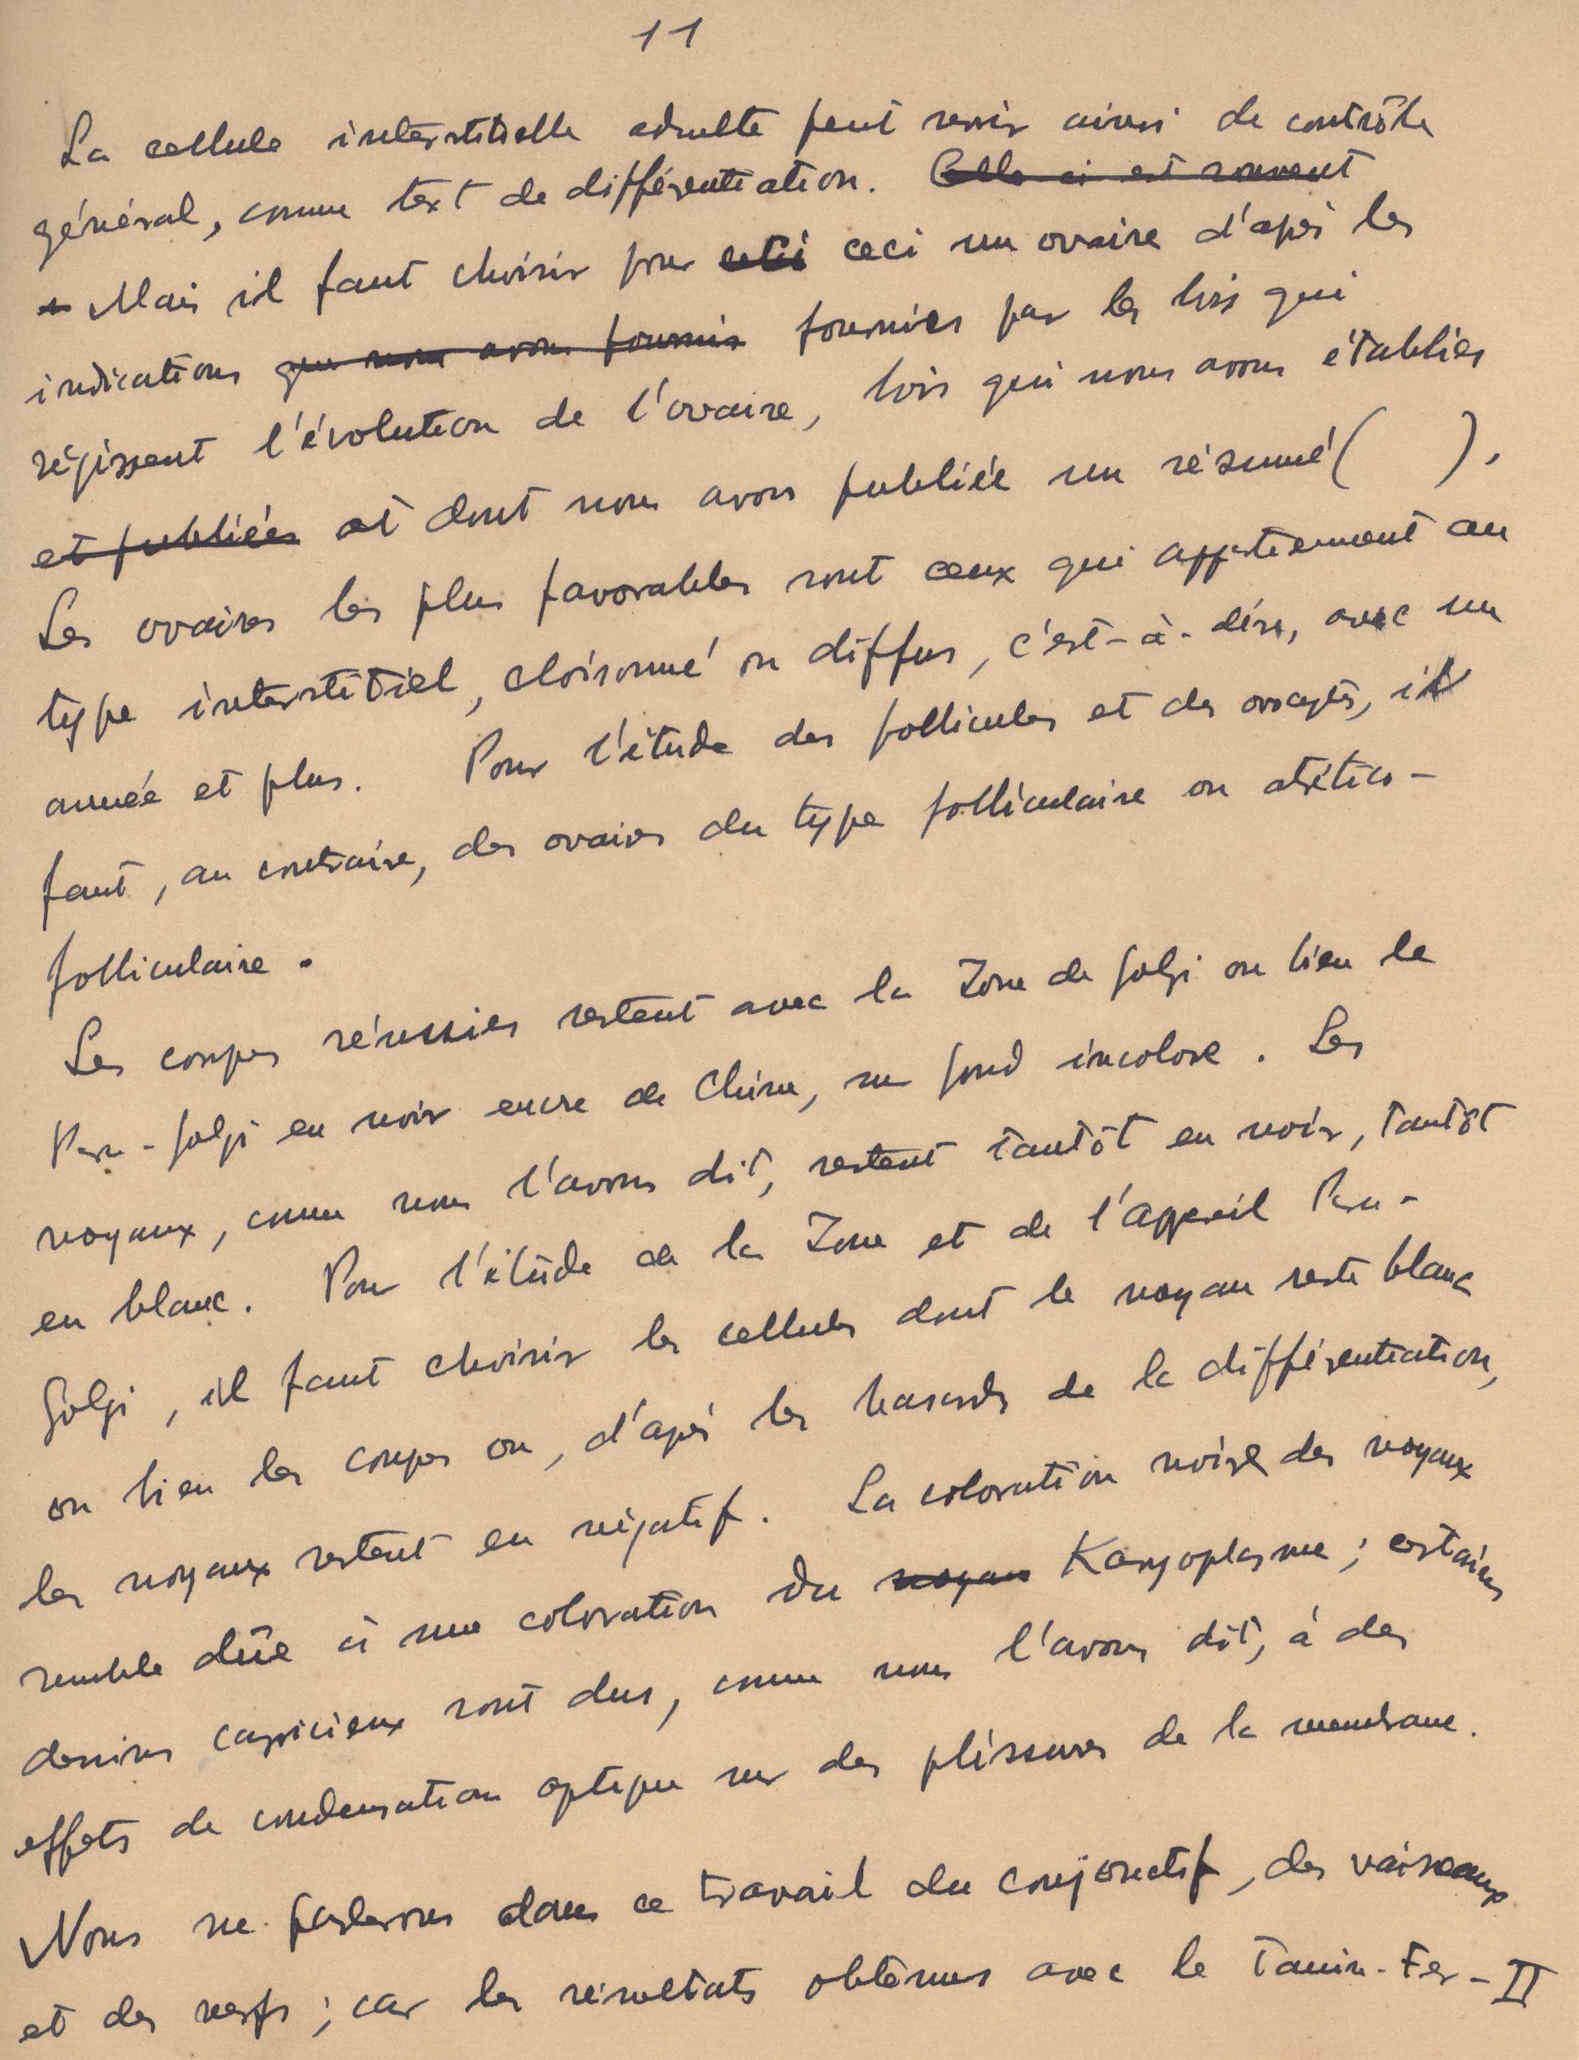 11
La cellule interstitielle adulte peut servir ainsi de contrôle
général, comme text de différentiation. Celle ci est souvent
Mais il faut choisir pour ceci un ovaire d'après les
indications que nous avons fournis fournies par les lois qui
régissent l'évolution de l'ovaire, lois qui nous avons établies
et publiées et dont nous avons publiée un résumé (    ).
Les ovaires les plus favorables sont ceux qui appartiennent au
type interstitiel, cloisonné ou diffus, c'est-à-dire, avec un
année et plus. Pour l'étude des follicules et des ovocytes, il
faut, au contraire, des ovaires du type folliculaire ou atrético-
folliculaire.
Les coupes réussies restent avec la Zone de Golgi ou bien le
Para-Golgi en noir encre de Chine, sur fond incolore. Les
noyaux, comme nous l'avons dit, restent tantôt en noir, tantôt
en blanc. Pour l'étude de la Zone et de l'appareil Para-
Golgi, il faut choisir les cellules dont le noyau reste blanc
ou bien les coupes ou, d'après les hasards de la différentiation,
les noyaux restent en négatif. La coloration noire des noyaux
semble dûe à une coloration du noyau Karyoplasme ; certains
dessins capricieux sont dus, comme nous l'avons dit, à des
effets de condensation optique sur des plissures de la membrane.
Nous ne parlerons dans ce travail du conjonctif, des vaisseaux
et des nerfs ; car les résultats obtenus avec le Tanin-Fer-II